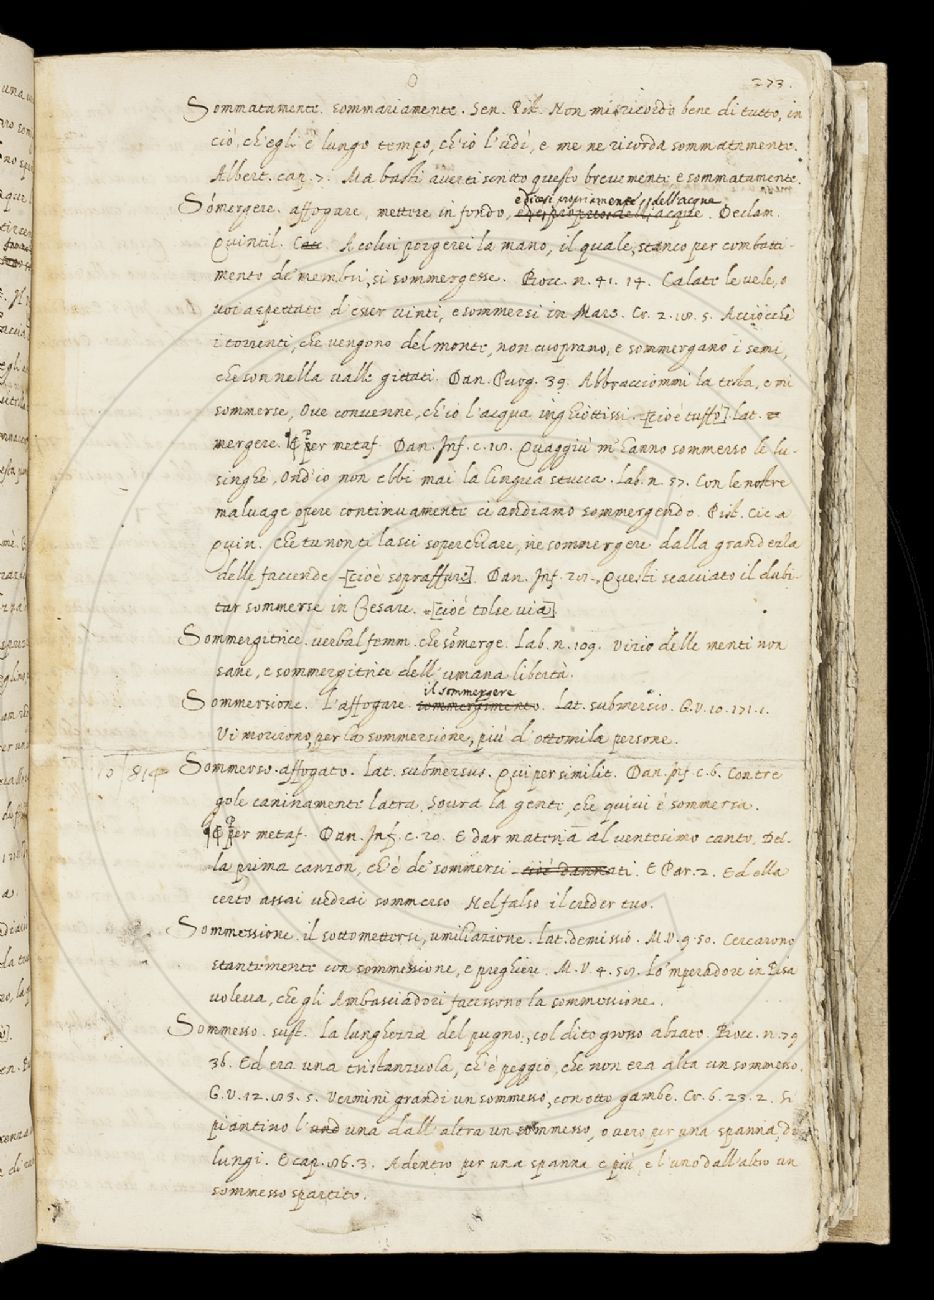 273.
Sommatamente. sommariamente. Sen. Pist. Non mi ricordo bene di tutto, in
ciò, ch'egli è lungo tempo, ch'io l'udì, e me ne ricorda sommatamente.
Albert. cap. 7. Ma basti averti scritto questo brevemente e sommatamente.
e dicesi propriamente dell'acqua
Sómergere. affogare, mettere in fondo, . Declam.
Quintil. C. A colui porgerei la mano, il quale, stanco per combatti-
mento de' membri, si sommergesse. Bocc. n. 41. 14. Calate le vele, o
voi aspettate d'esser vinti, e sommersi in Mare. Cr. 2. 18. 5. Acciocchè
i torrenti, che vengono del monte, non cuoprano, e sommergano i semi,
che son nella valle gittati. Dan. Purg. 39. Abbracciommi la testa, e mi
sommerse, Ove convenne, ch'io l'acqua inghiottissi. [cioè tuffò] lat.
mergere. Per metaf. Dan. Inf. c. 18. Quaggiù m'hanno sommerso le lu-
singhe, Ond'io non ebbi mai la lingua stucca. Lab. n. 57. Con le nostre
malvage opere continuamente ci andiamo sommergendo. Pist. Cic. a
Quin. Che tu non ti lasci soperchiare, ne sommergere dalla grandezza
delle faccende [cioè sopraffare]. Dan. Inf. 28. Questi scacciato il dubi-
tar sommerse in Cesare. [cioè tolse via]
Sommergitrice. verbal femm. che sómerge. Lab. n. 109. Vizio delle menti non
sane, e sommergitrice dell'umana libertà.
il sommergere
Sommersione. L'affogare sommergimento. Lat. submersio. G. V. 10. 171. 1.
Vi morirono, per la sommersione, più d'ottomila persone.
Sommerso. affogato. Lat. submersus. Qui per similit. Dan. Inf. c. 6. Con tre
gole caninamente latra, Sovra la gente, che quivi è sommersa.
Per metaf. Dan. Inf. c. 20. E dar materia al ventesimo canto, Del-
la prima canzon, ch'è de' sommersi cioè dannati. E Par. 2. Ed ella
certo assai vedrai sommerso Nel falso il creder tuo.
Sommessione. il sottomettersi, umiliazione. Lat. demissio. M. V. 9. 50. Cercarono
stantemente con sommessione, e preghiere. M. V. 4. 58. Lo 'mperadore in Pisa
voleva, che gli Ambasciadori facessono la sommessione.
Sommesso. sust. La lunghezza del pugno, col dito grosso alzato. Bocc. n. 79
36. Ed era una tristanzuola, ch'è peggio, che non era alta un sommesso.
G. V. 12. 83. 5. Vermini grandi un sommesso, con otto gambe. Cr. 6. 23. 2. Si
piantino l'und una dall'altra un sommesso, o vero per una spanna, di
lungi. E cap. 86. 3. Adentro per una spanna e più, e l'uno dall'altro un
sommesso spartito.